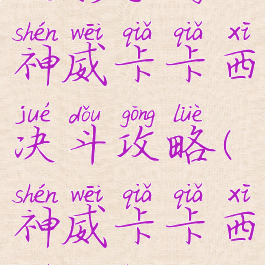 shén wēi qiǎ qiǎ xī
神威卡卡西
jué dǒu gōng lüè
决斗攻略(
shén wēi qiǎ qiǎ xī
神威卡卡西